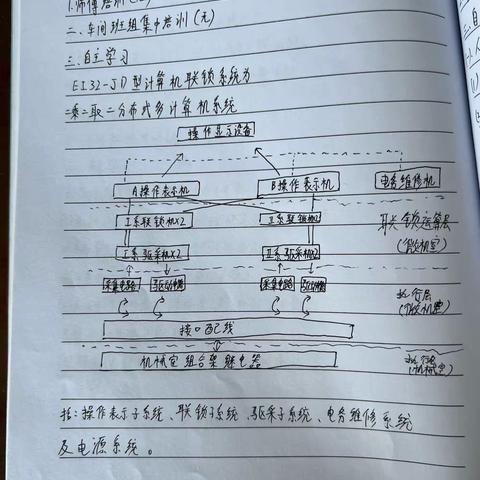 1.师傅培训(元)
二、车间班组集中培训(元)
三、自主学习
EI32-JD型计算机联锁系统为
二乘二取二分布式多计算机系统
操作显示设备
A操作表示机 B操作表示机 电务维修机
I系联锁机×2 II系联锁机×2 联锁运算层
(微机室)
I系驱采机×2 II系驱采机×2
采集电路 驱动电路 采集电路 驱动电路 执行层
(微机室)
接口配线
机械室组合架继电器 执行层
(机械室)
括:操作表示子系统、联锁子系统、驱采子系统、电务维修系统
及电源系统。